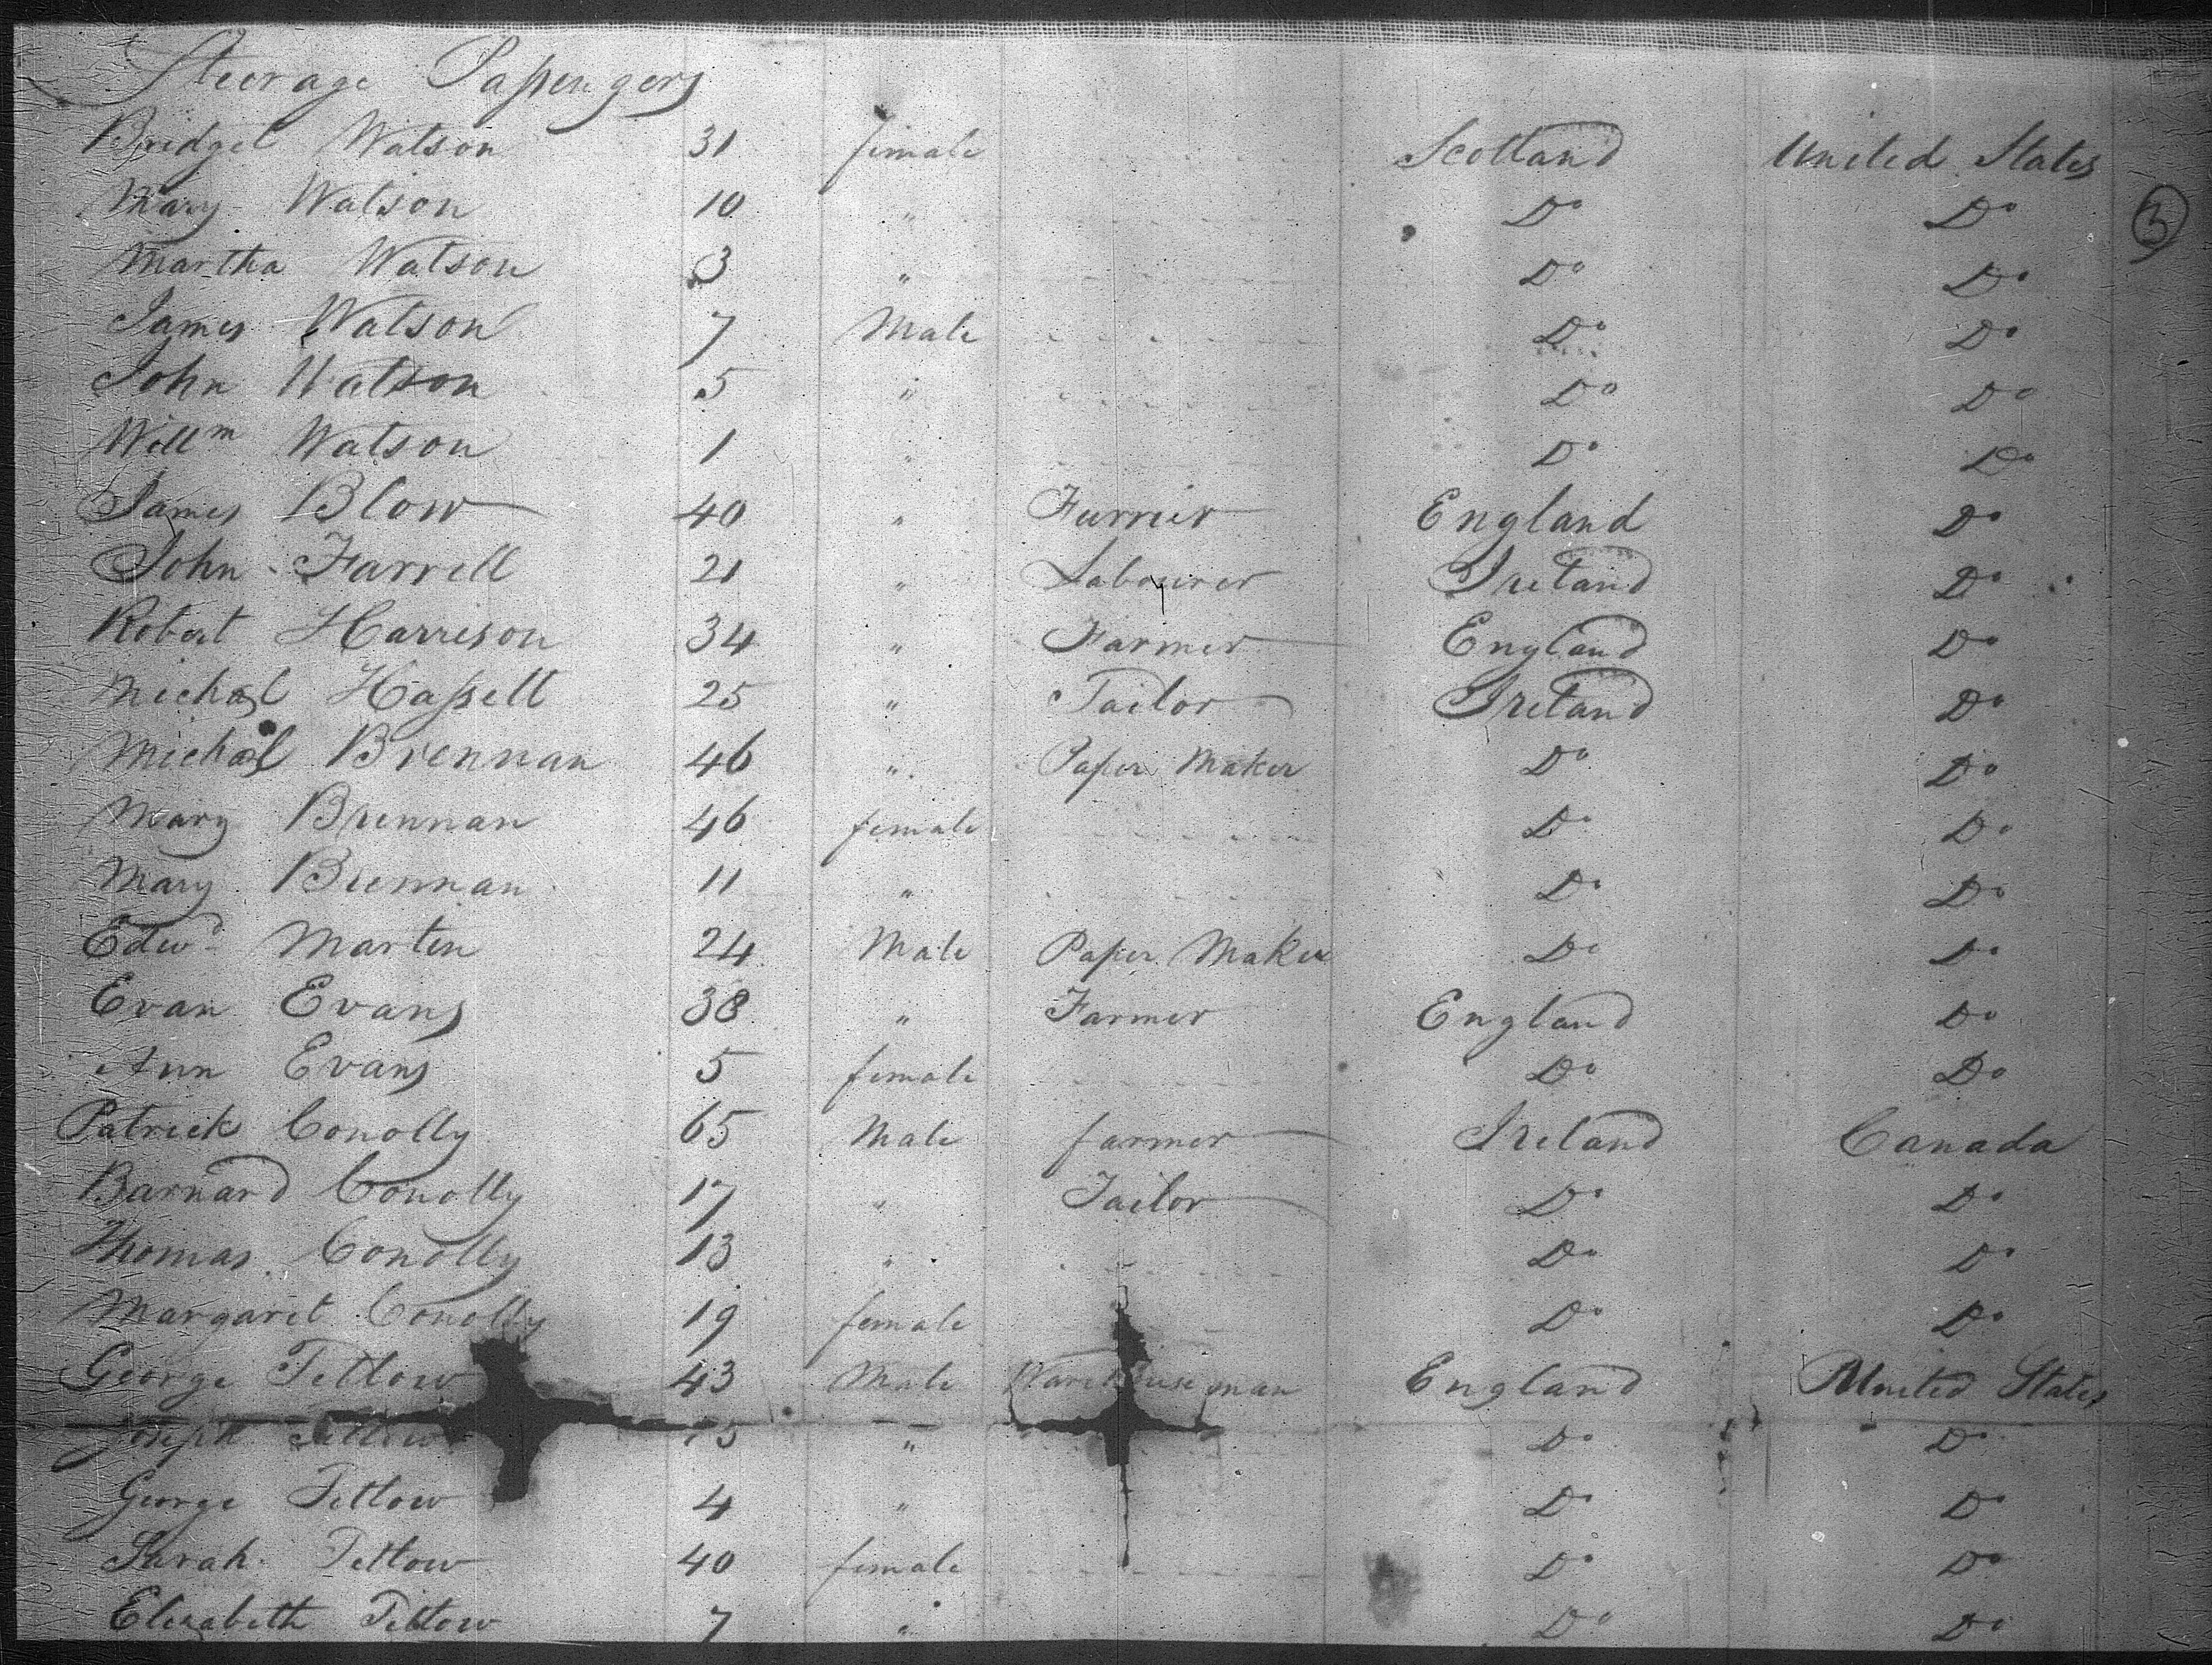 Steerage Passengers
Bridget Watson 31 female Scotland United States
Mary Watson 10 " Do Do
3
Martha Watson 3 " Do Do
James Watson 7 Male Do Do
John Watson 5 " Do Do
Willm Watson 1 " Do Do
James Blow 40 " Furrier England Do
John Farrell 21 " Labourer Ireland Do
Robert Harrison 34 " Farmer England Do
Michael Hassett 25 " Tailor Ireland Do
Michael Brennan 46 " Paper Maker Do Do
Mary Brennan 46 female Do Do
Mary Brennan 11 " Do Do
Edwd Martin 24 Male Paper Maker Do Do
Evan Evans 38 " Farmer England Do
Ann Evans 5 female Do Do
Patrick Conolly 65 Male farmer Ireland Canada
Barnard Conolly 17 " Tailor Do Do
Thomas Conolly 13 " Do Do
Margaret Conolly 19 female Do Do
George Tetlow 43 Male Warehouseman England United States
Joseph Tetlow " Do Do
George Tetlow 4 " Do Do
Sarah Tetlow 40 female Do Do
Elizabeth Tetlow 7 " Do Do